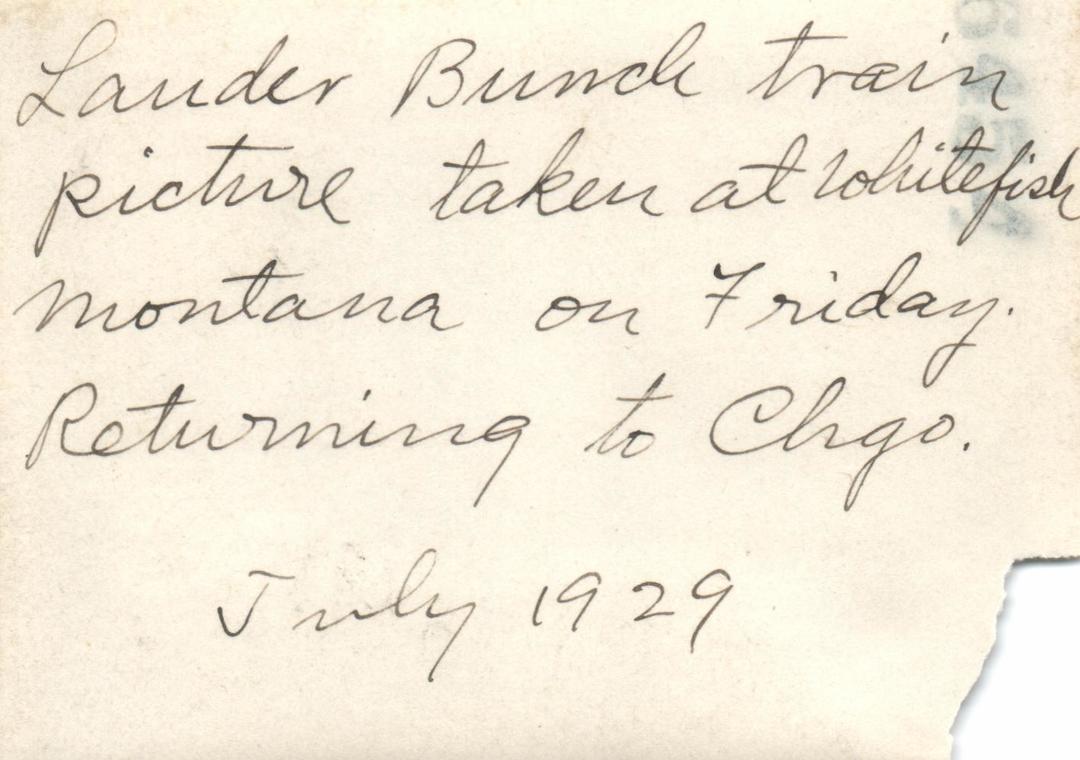 Lauder Bunch train
picture taken at Whitefish
Montana on Friday.
Returning to Chgo.
July 1929